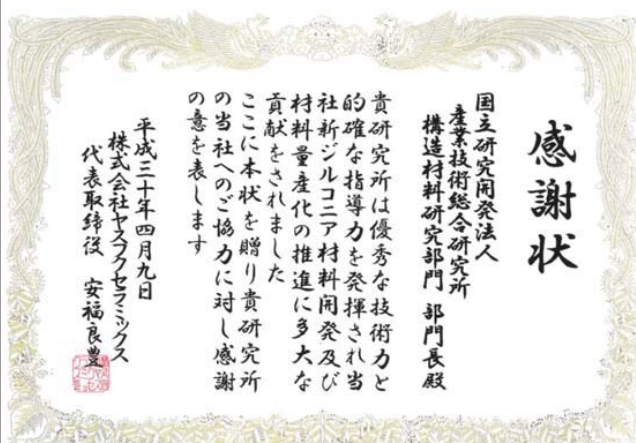 感謝状
国立研究開発法人
産業技術総合研究所
構造材料研究部門 部門長殿
貴研究所は優秀な技術力と
的確な指導力を発揮され当
社新ジルコニア材料開発及び
材料量産化の推進に多大な
貢献をされました
ここに本状を贈り貴研究所
の当社へのご協力に対し感謝
の意を表します
平成三十年四月九日
株式会社ヤスフクセラミックス
代表取締役 安福良豊